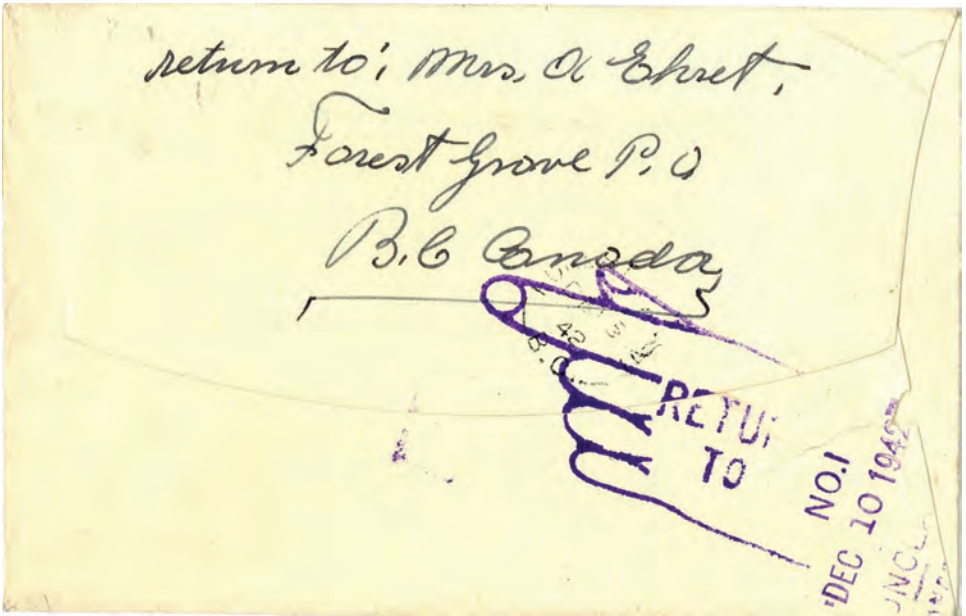 return to: Mrs. A Ehret.
Forest Grove P.O
B.C Canada
42
B.C
RETUR
TO
NO.1
DEC 10 1942